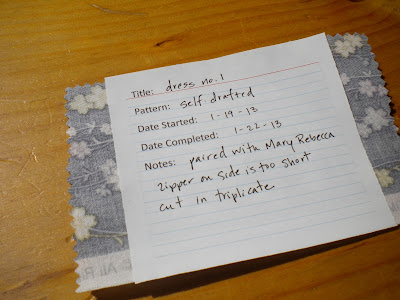 Title: dress no. 1
Pattern: self. drafted
Date Started: 1-19-13
Date Completed: 1-22-13
Notes: paired with Mary Rebecca
zipper on side is too short
cut in triplicate